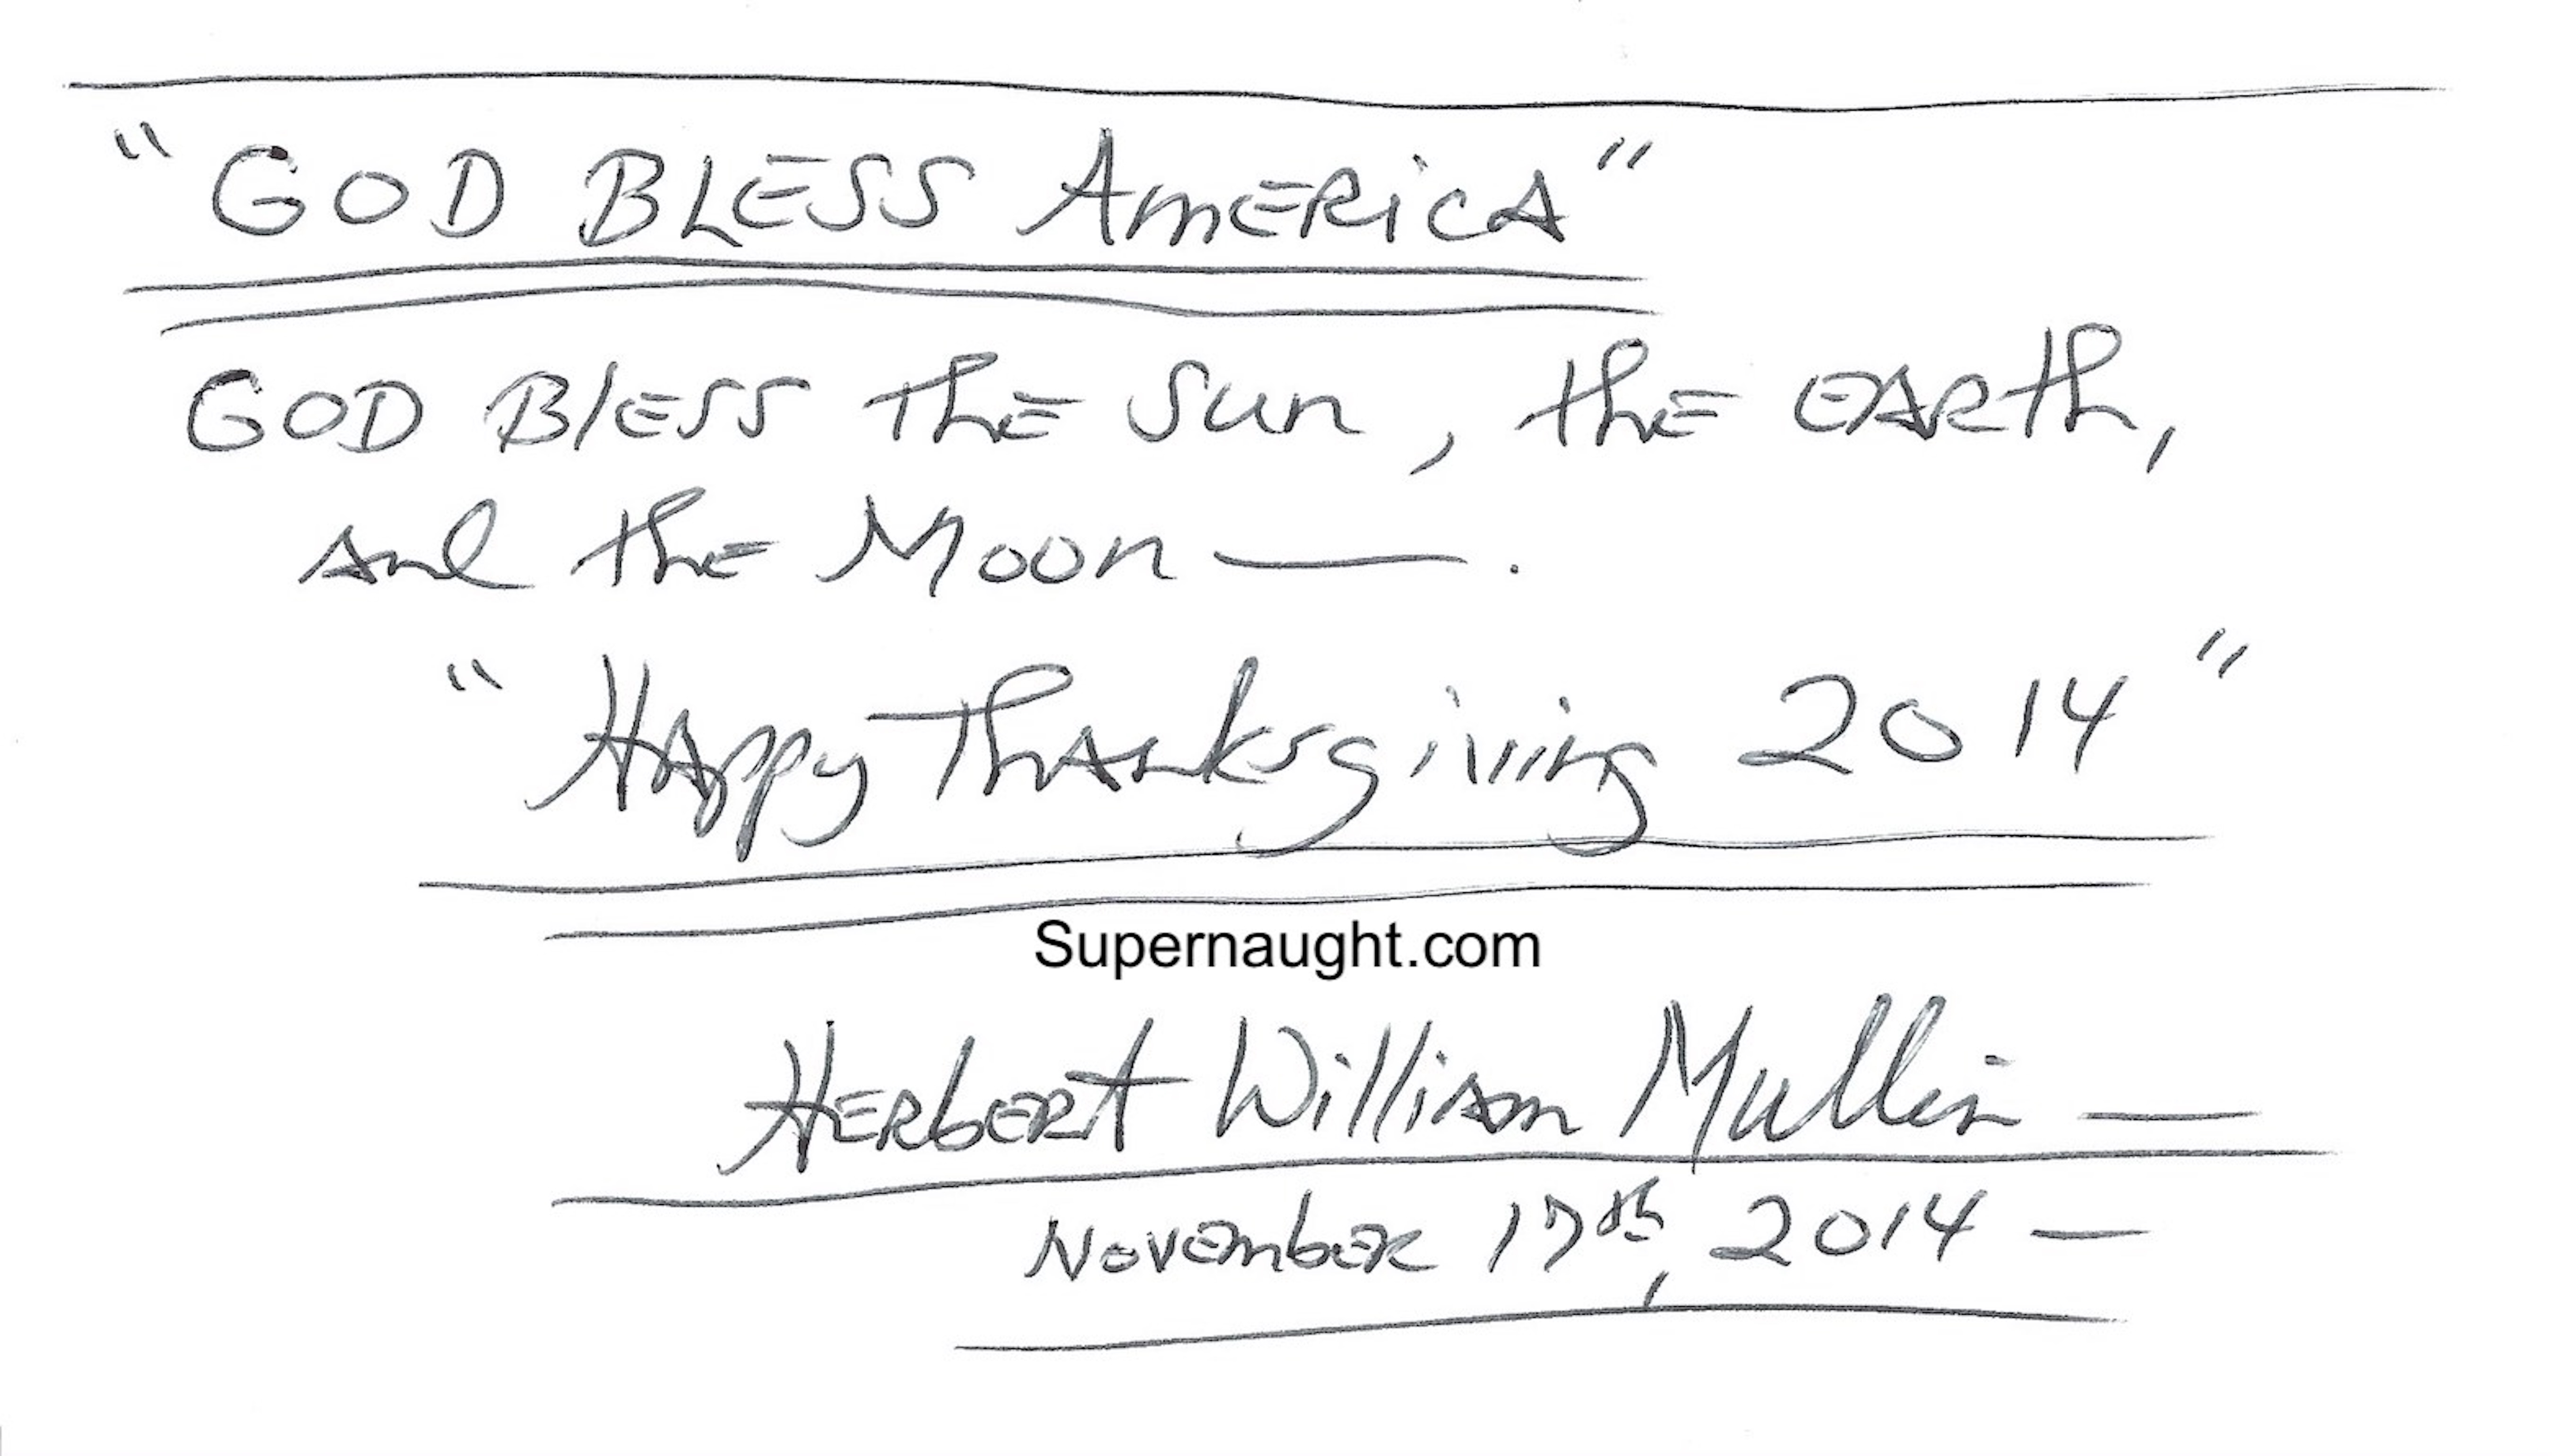 "GOD BLESS AMERICA"
GOD BLESS the Sun, the EARth,
And the Moon — .
"HAppy ThAnksgiving 2014"
Supernaught.com
HERbERt WilliAm Mullin —
NovEmbER 17th, 2014 —